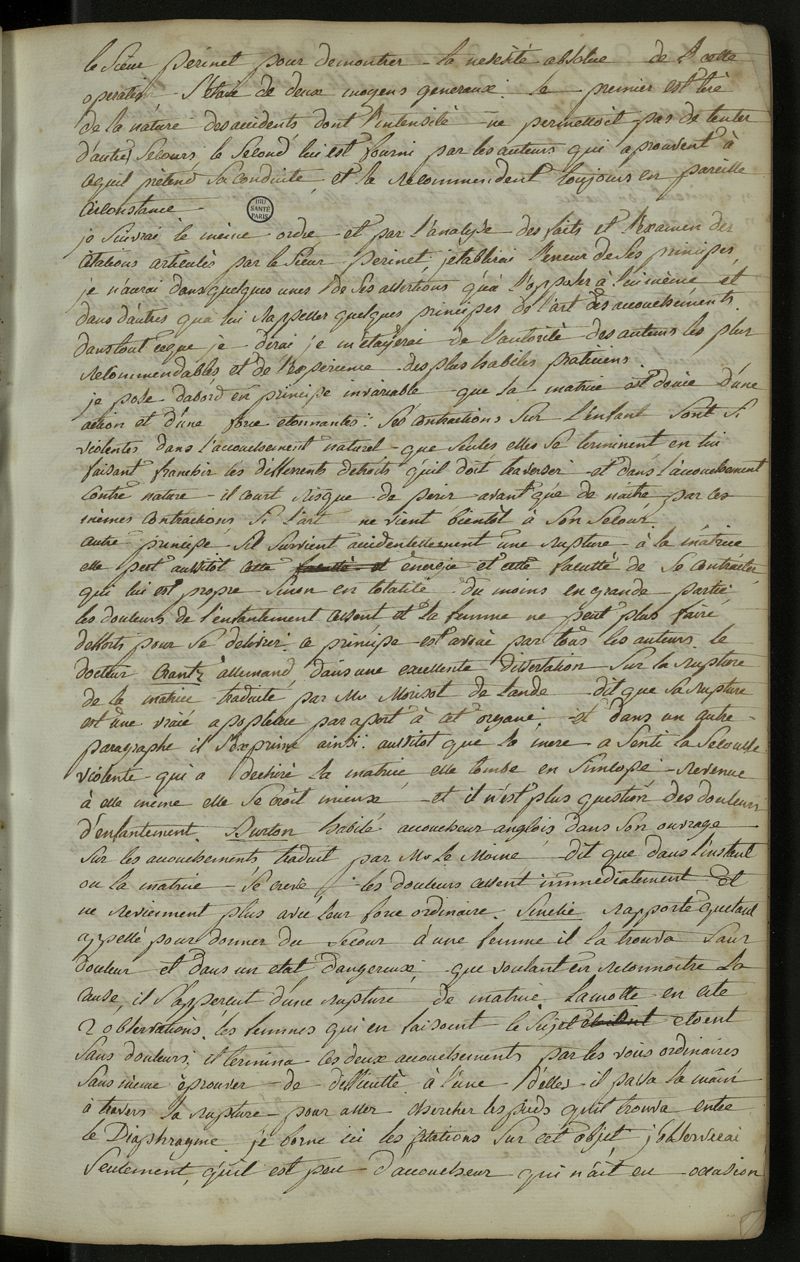 le Sieur perinet pour demontrer la nécésité absolue de cette
operation S'étaie de deux moyens generaux le premier est tiré
de la nature desaccidents dont l'intensité ne permettoit pas de tenter
d'autres Secours, le Second lui est fourni par les auteurs qui aprouvent à
cequil prétend Sa conduite, et la recommendent toujours en pareille
circonstance
BIU
SANTÉ
PARIS
je Suivrai le même ordre et par l'analyse des faits et l'examen des
citations articulés par le Sieur perinet, j'établirai l'erreur de Ses principes,
je n'aurai dans quelques unes de Ses assertions qu'à l'opposer à lui même et
dans d'autres qu'à lui Rappeller quelques principes de l'art des accouchements.
dans tout ceque je dirai je m'étayerai de l'autorité des auteurs les plus
Recommendables et de l'expérience des plus habiles praticiens.
je pose dabord en principe invariable que la matrice est douée D'une
action et d'une force etonnantes: Ses contractions Sur l'enfant Sont Si
violentes dans l'accouchement naturel que Seules elles Se terminent en lui
faisant franchir les différents detroits qu'il doit traverser et dans l'accouchement
contre nature il court risque de perir avant que de naitre par ces
mêmes contractions Si l'art ne vient bientôt à Son Secour.
autre principe Si Survient accidentellement une rupture à la matrice
elle perd aussitot cette énergie et cette faculté de Se contracter
qui lui est propre Sinon en totalité du moins en grande partie
les douleurs de l'enfantement cessent et la femme ne peut plus faire
d'efforts pour Se delivrer. ce principe est avoué par tous les auteurs. le
docteur Crantz allemand, dans une excellente dissertation Sur la rupture
de la matrice traduite par Mr Morisot de Lande dit que la rupture
est une vraie apoplexie par aport à cet organe, et dans un autre
paragraphe il S'exprime ainsi: aussitot que la mere a Senti la Secousse
violente qui a dechiré la matrice, elle tombe en Sincope. Revenue
à elle même elle Se croit mieux, et il n'est plus question des douleurs
d'enfantement. Burton habile accoucheur anglois dans Son ouvrage
Sur les accouchements traduit par Mr Le Moine dit que dans l'instant
ou la matrice Se creve les douleurs cessent immédiatement et
ne reviennent plus avec leur force ordinaire. Smelie rapporte qu'etant
appellé pour donner du Secour à une femme il la trouva Sans
douleur et dans un etat dangereux, que voulant en reconnoitre la
cause, il S'apperçut d'une rupture de matrice. Lamotte en cite
2 observations. les femmes qui en faisoient le Sujet etoient
Sans douleurs, il termina ces deux accouchements par les voies ordinaires
Sans même éprouver de difficulté. à l'une d'elles il passa la main
à travers la rupture pour aller chercher les pieds qu'il trouva entre
le Diaphragme. je borne ici les citations Sur cet objet j'observerai
Seulement, qu'il est peu d'accoucheur qui n'ait eu occasion